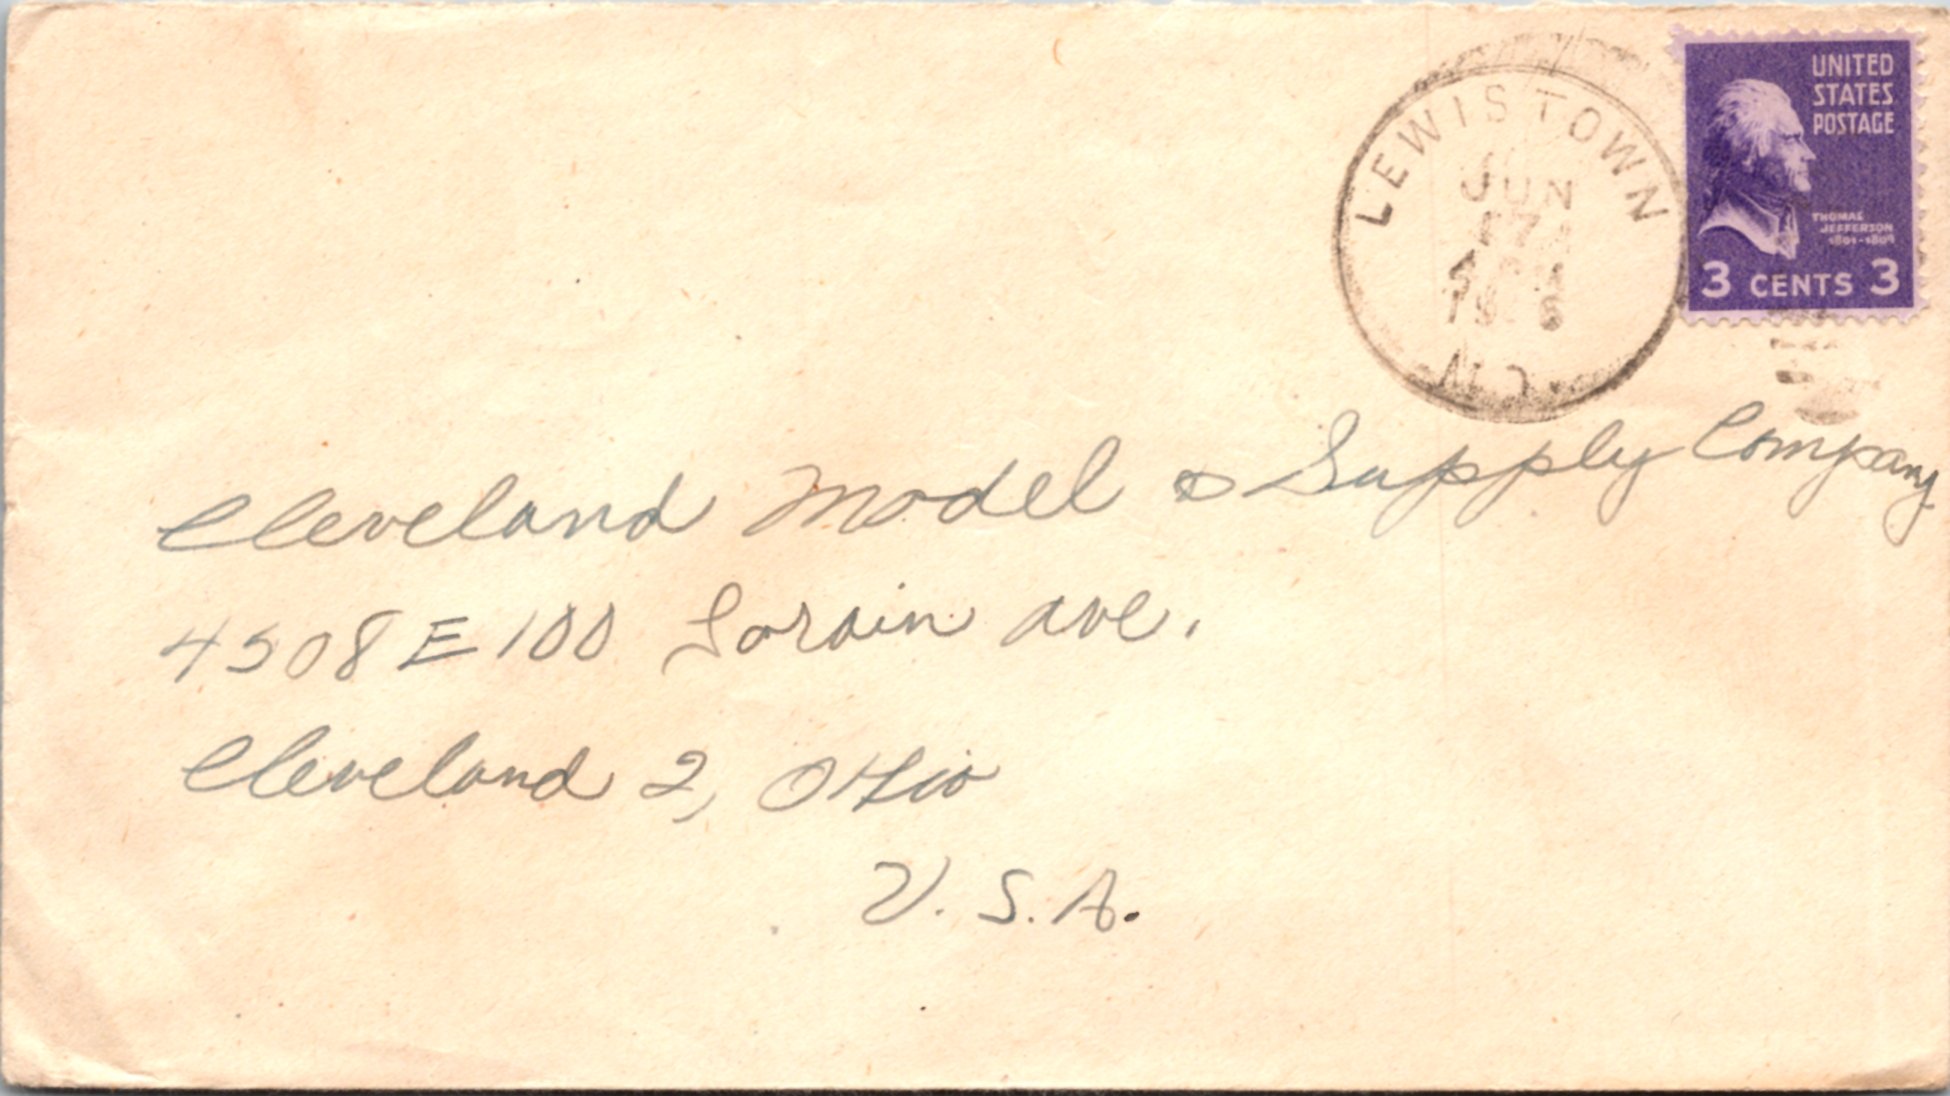 LEWISTOWN
JUN
17
MO.
UNITED
STATES
POSTAGE
THOMAS
JEFFERSON
1801-1809
3 CENTS 3
Cleveland Model & Supply Company
4508 E 100 Lorain ave.
Cleveland 2, Ohio
U.S.A.